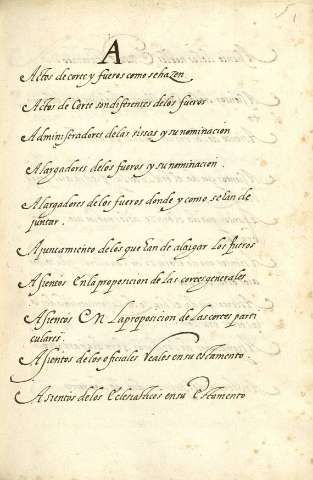 A
Actos de corte y fueros como se hazen
Actos de Corte son diferentes de los fueros
Administradores de las sissas y su nominacion
Alargadores de los fueros y su nominacion.
Alargadores de los fueros donde y como se han de
juntar.
Ajuntamiento de los que han de alargar los fueros
Asientos En la proposicion de las cortes generales
Asientos EN La proposicion de las cortes parti
culares.
Asientos de los oficiales Reales en su estamento.
Asientos de los Eclesiasticos en su Estamento